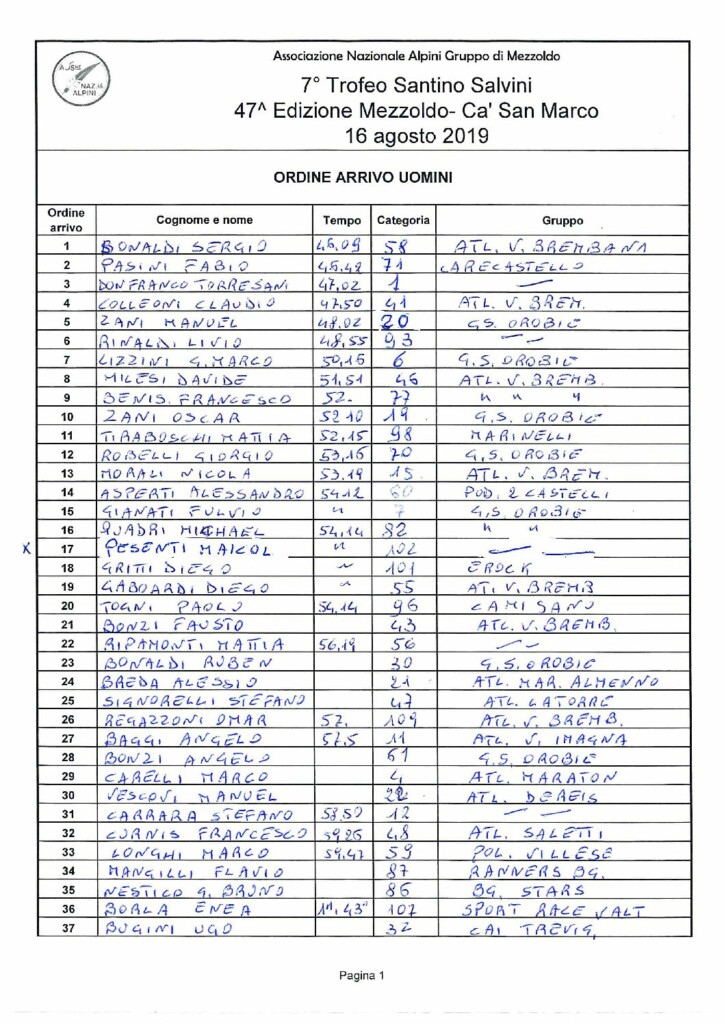 Associazione Nazionale Alpini Gruppo di Mezzoldo
NAZ.LE
ALPINI
7° Trofeo Santino Salvini
47^ Edizione Mezzoldo- Ca' San Marco
16 agosto 2019
ORDINE ARRIVO UOMINI
Ordine arrivo Cognome e nome Tempo Categoria Gruppo
1 BONALDI SERGIO 46.09 58 ATL. V. BREMBANA
2 PASINI FABIO 46.42 71 CARECASTELLO
3 DON FRANCO TORRESANI 47,02 1 —
4 COLLEONI CLAUDIO 47.50 41 ATL. V. BREM.
5 ZANI MANUEL 48.02 20 GS. OROBIE
6 RINALDI LIVIO 48,55 93 —
7 LIZZINI G.MARCO 50,16 6 G.S. OROBIE
8 MILESI DAVIDE 51,51 46 ATL. V. BREMB.
9 BENIS. FRANCESCO 52. 77 " " "
10 ZANI OSCAR 52 10 19 G.S. OROBIE
11 TIRABOSCHI MATTIA 52,15 98 MARINELLI
12 ROBELLI GIORGIO 53,16 70 G.S. OROBIE
13 MORALI NICOLA 53.19 15. ATL. V. BREM.
14 ASPERTI ALESSANDRO 5412 60 POD. 2 CASTELLI
15 GIANATI FULVIO " 7 G.S. OROBIE
16 QUADRI MICHAEL 54,14 82 " "
X 17 PESENTI MAICOL " 102 —
18 GRITTI DIEGO " 101 EROCK
19 GABOARDI DIEGO " 55 ATL. V. BREMB
20 TOGNI PAOLO 54,14 96 CAMISANO
21 BONZI FAUSTO 43 ATL. V. BREMB.
22 RIPAMONTI MATTIA 56,19 56 —
23 BONALDI RUBEN 30 G.S. OROBIE
24 BREDA ALESSIO 21 ATL. MAR. ALMENNO
25 SIGNORELLI STEFANO 47 ATL. LATORRE
26 REGAZZONI OMAR 57, 109 ATL. V. BREMB.
27 BAGGI ANGELO 57,5 11 ATL. V. IMAGNA
28 BONZI ANGELO 61 G.S. OROBIE
29 CARELLI MARCO 4 ATL. MARATON
30 VESCOVI MANUEL 22 ATL. DEREIS
31 CARRARA STEFANO 58,50 12 —
32 CORNIS FRANCESCO 59 26 48 ATL. SALETTI
33 LONGHI MARCO 59,47 59 POL. VILLESE
34 MANGILLI FLAVIO 87 RANNERS BG.
35 NESTICO G. BRUNO 86 BG. STARS
36 BORLA ENEA 107 SPORT RACE VALT
37 BUGINI UGO 32 CAI TREVIG.
Pagina 1